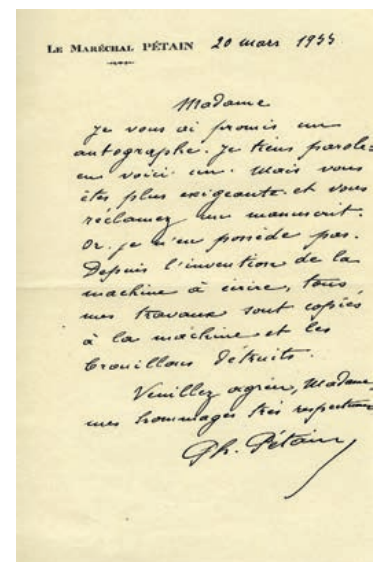 LE MARÉCHAL PÉTAIN 20 mars 1933
Madame
Je vous ai promis un
autographe. Je tiens parole.
en voici un. Mais vous
êtes plus exigeante et vous
réclamez un manuscrit.
Or je n'en possède pas.
Depuis l'invention de la
machine à écrire, tous
mes travaux sont copiés
à la machine et les
brouillons détruits.
Veuillez agréer, Madame,
mes hommages très respectueux
Ph. Pétain